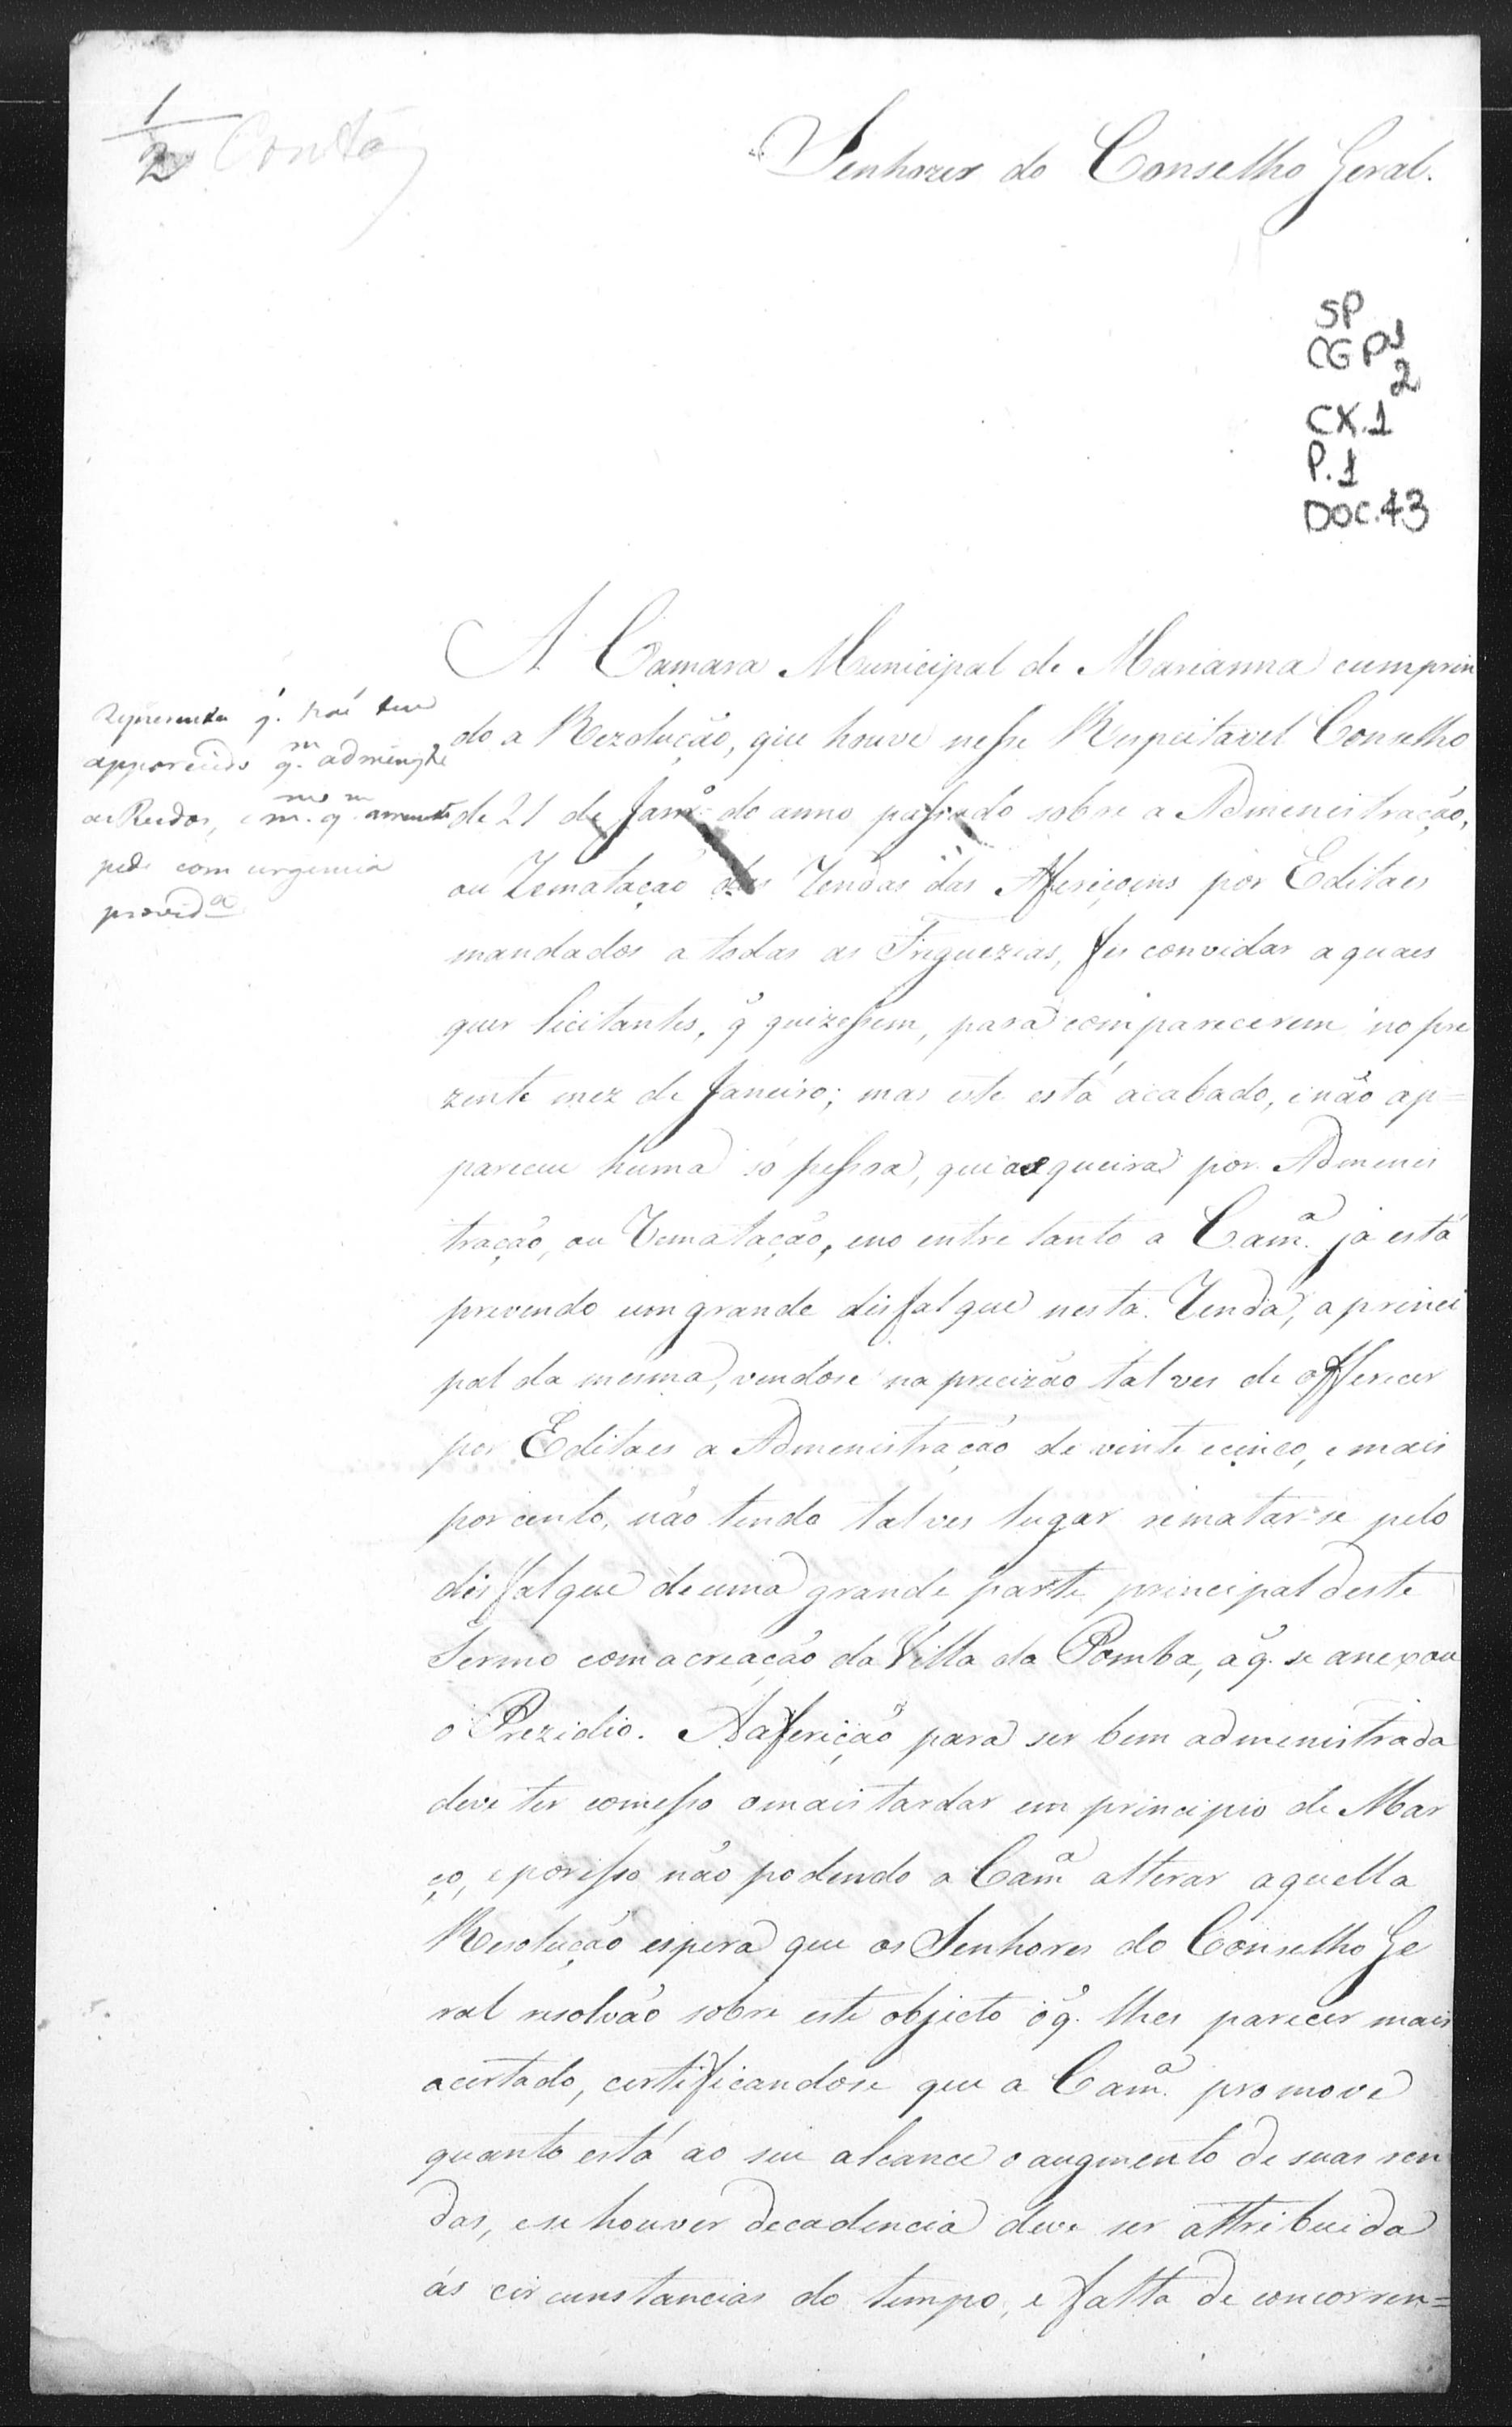 1
2 Contas
Senhores do Conselho Geral.
SP
CGP1
2
CX.1
P.1
DOC.43
A Camara Municipal de Marianna cumprin
do a Rezolução, que houve nesse Respeitavel Conselho
de 21 de Janr.º do anno passado sobre a Admenistração,
ou Rematação das Rendas das Afericoens por Editaes
mandados a todas as Freguezias, fes convidar a quaes
quer licitantes, q̃ quizessem, para comparecerem no pre
zente mez de Janeiro; mas este está acabado, e não ap=
pareceu huma só pessoa, que as queira por Admenis
tração, ou Rematação, e no entre tanto a Cam.ª já está
prevendo um grande disfalque nesta Renda, a princi
pal da mesma, vendose na precizão tal ves de offerecer
por Editaes a Admenistração de vinte e cinco, e mais
por cento, não tendo tal ves lugar rematar-se pelo
disfalque de uma grande parte principal deste
Termo com a creação da Villa da Pomba, á q. se anexou
o Prezidio. A aferição para ser bem admenistrada
deve ter comesso o mais tardar em principio de Mar
ço, e por isso não podendo a Cam.ª alterar aquella
Resolução espera que os Senhores do Conselho Ge
ral resolvão sobre este objecto o q. lhes parecer mais
acertado, certificandose que a Cam.ª promove
quanto está ao seu alcance o augmento de suas ren
das, e se houver decadencia deve ser attribuida
ás circunstancias do tempo, e falta de concorren=
Representa q. não tem
apparecido q.m admenistre
as Rendas, nem q.m arremate
pede com urgencia
provid.ª